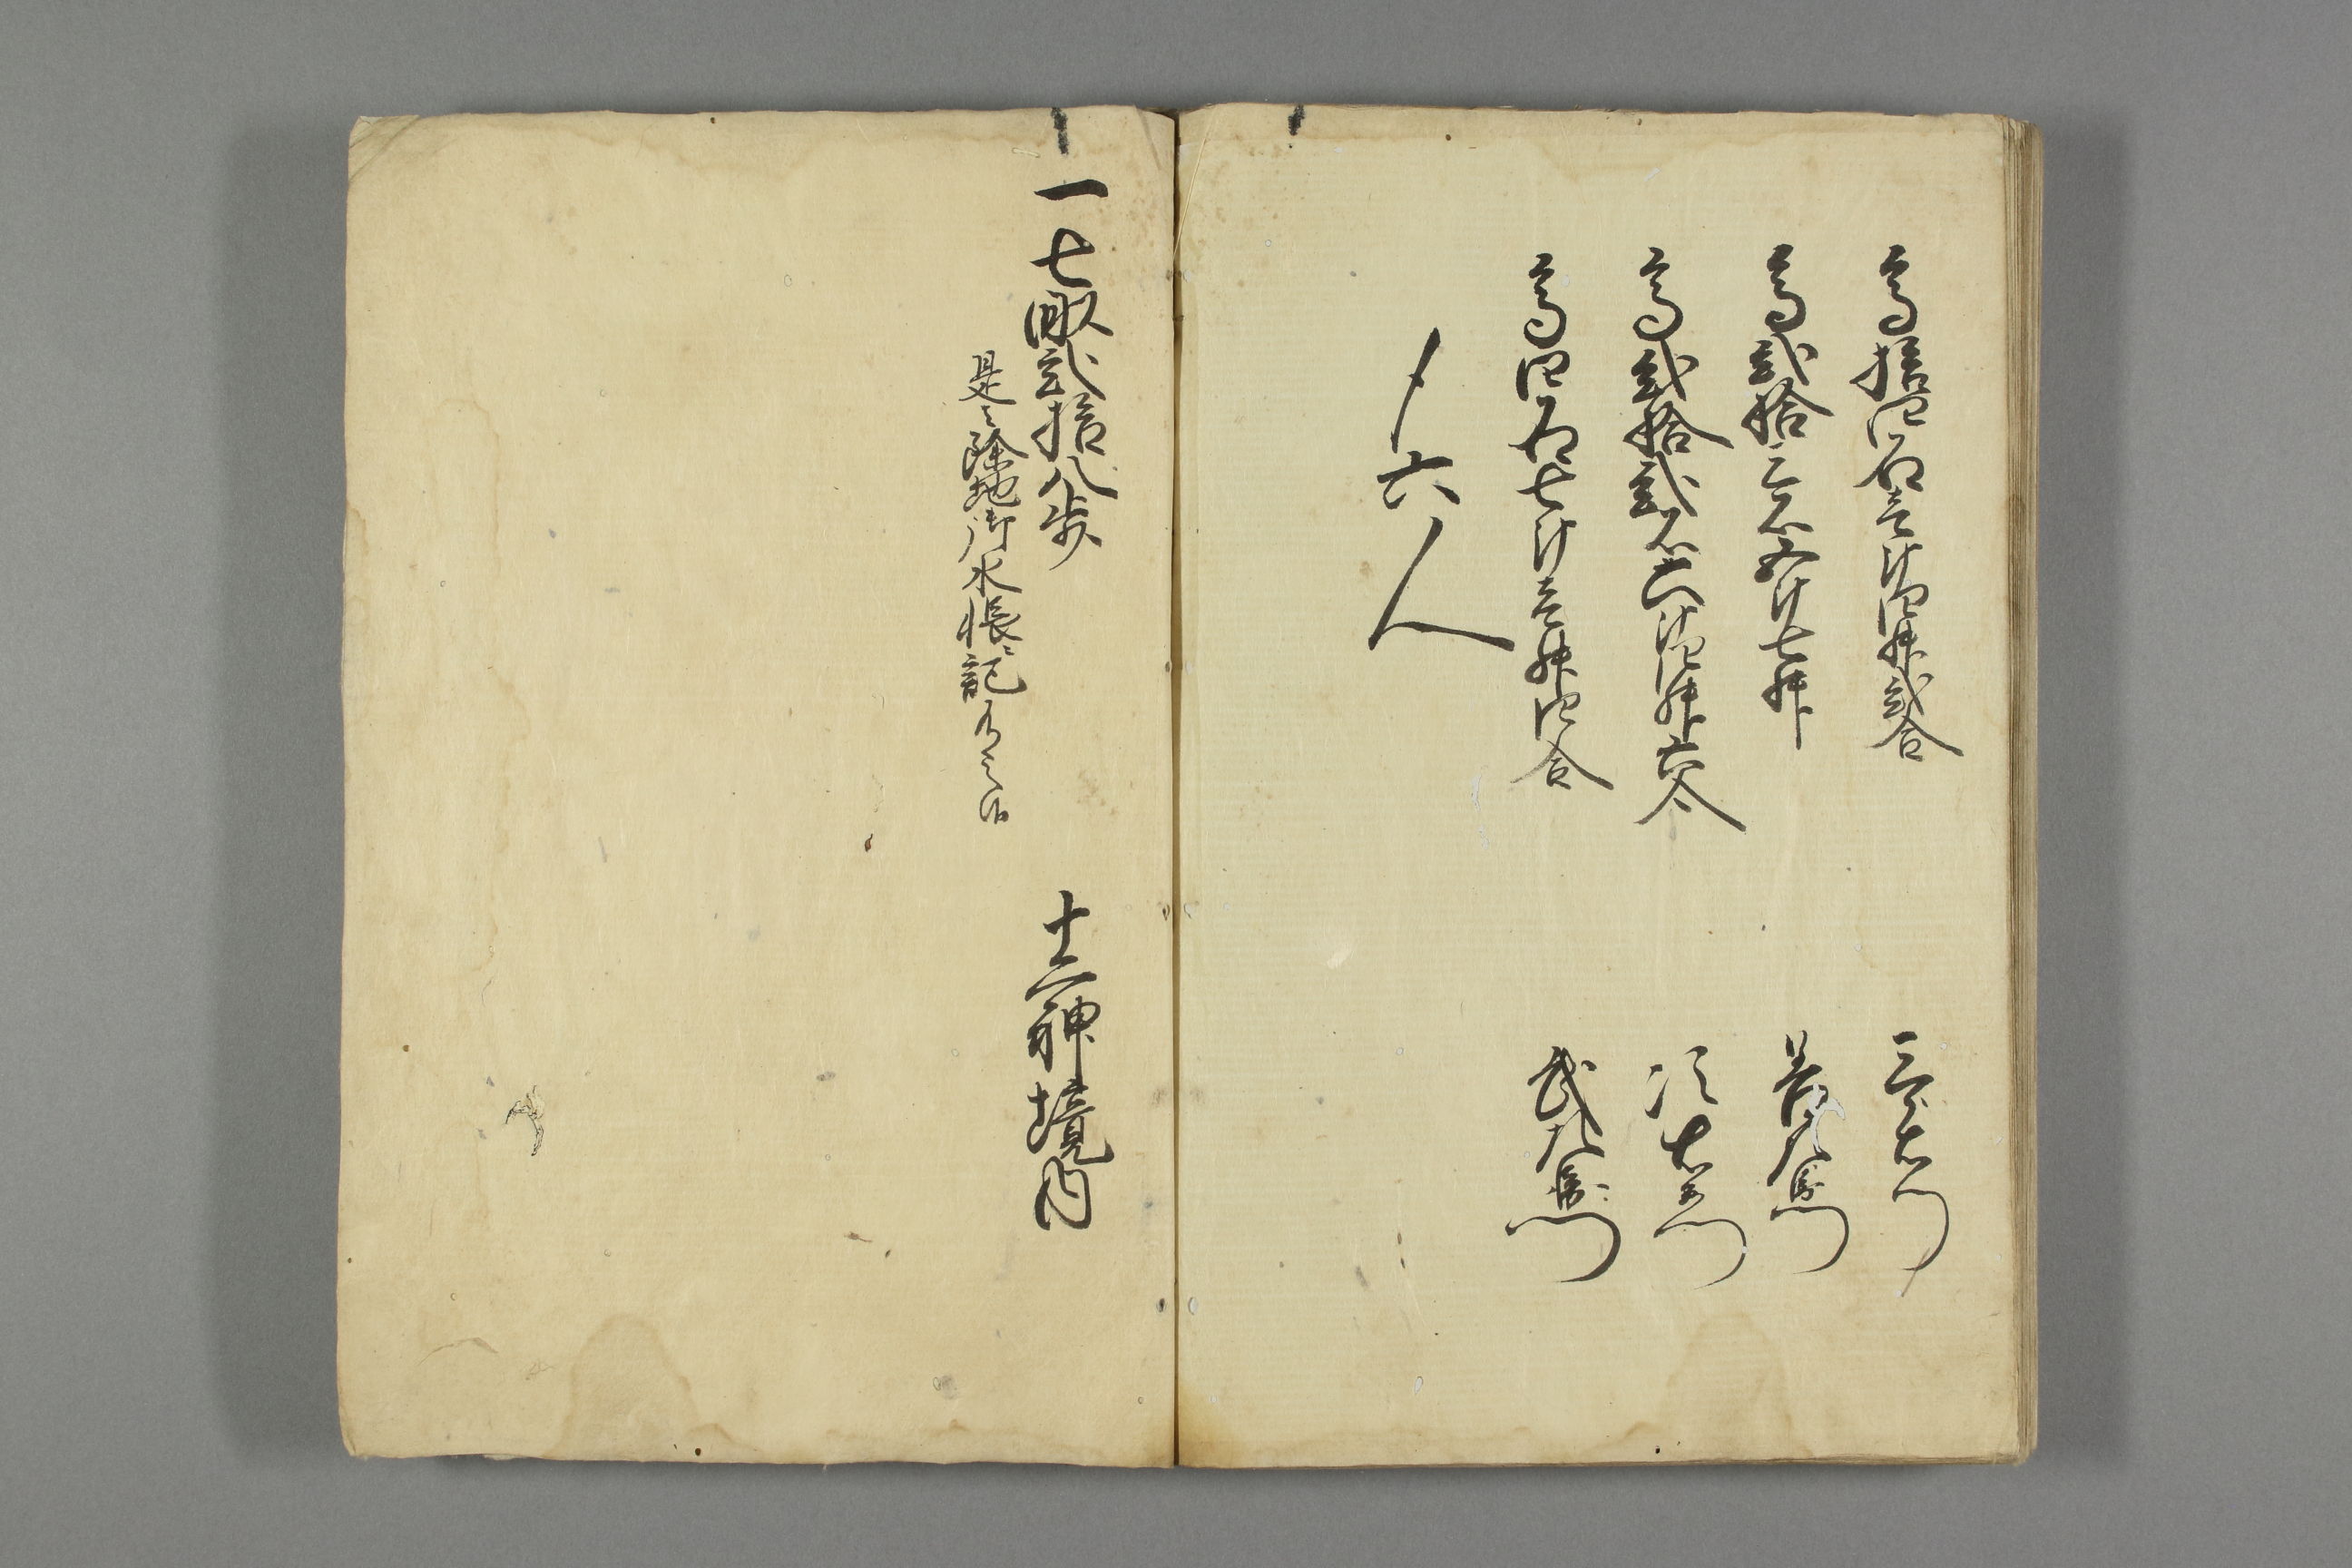 高拾四石壱斗四升弐合　三右衛門
高弐拾三石五斗七升　善左衛門
高弐拾弐石六斗四升六合　次右衛門
高四石七斗壱升四合　武左衛門
〆六人
一七畝弐拾八歩　十二神境内
是ハ除地御水帳ニ記有之候